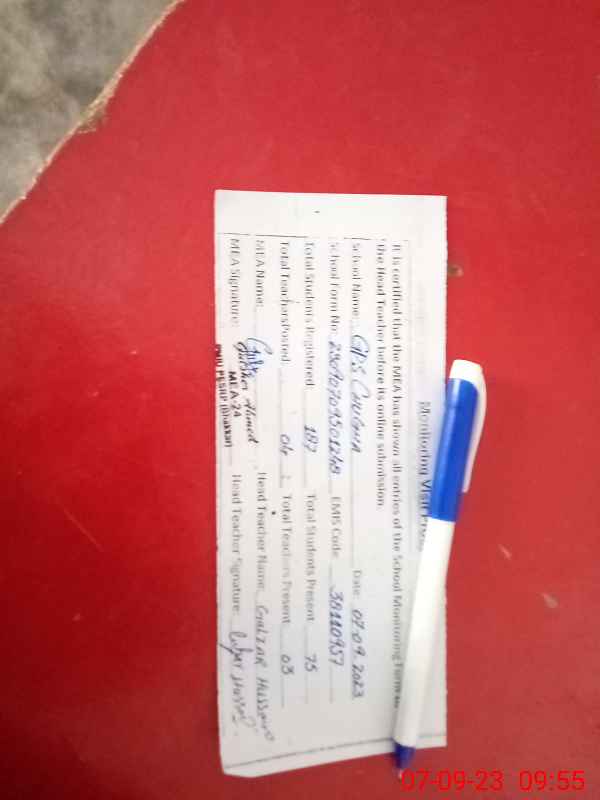 Monitoring Visit
It is certified that the MEA has shown all entries of the School Monitoring Form to
the Head Teacher before its online submission.
School Name: GPS CHUGHA Date: 07-09-2023
School Form No: EMIS Code: 38110957
Total Students Registered: 187 Total Students Present 75
Total Teachers Posted: 04 Total Teachers Present 03
MEA Name: Head Teacher Name: GULZAR HUSSAIN
MEA Signature: Ahmed Head Teacher Signature:
MEA-24
PMIU PESRP (Bhakkar)
07-09-23 09:55